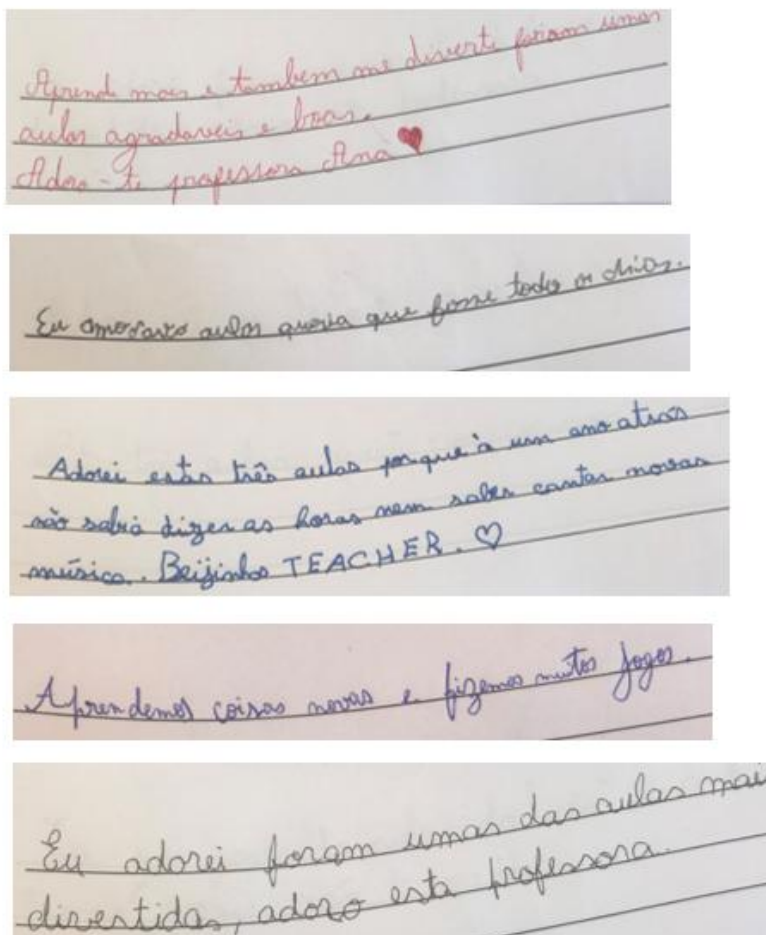 Aprendi mais e tambem me diverti foram umas
aulas agradaveis e boas.
Adoro-te professora Ana
Eu aulas queria que fosse todos os dias.
Adorei estas três aulas porque à um ano atrás
não sabia dizer as horas nem saber cantar novas
música. Beijinhos TEACHER.
Aprendemos coisas novas e fizemos muitos jogos.
Eu adorei foram umas das aulas mais
divertidas, adoro esta professora.